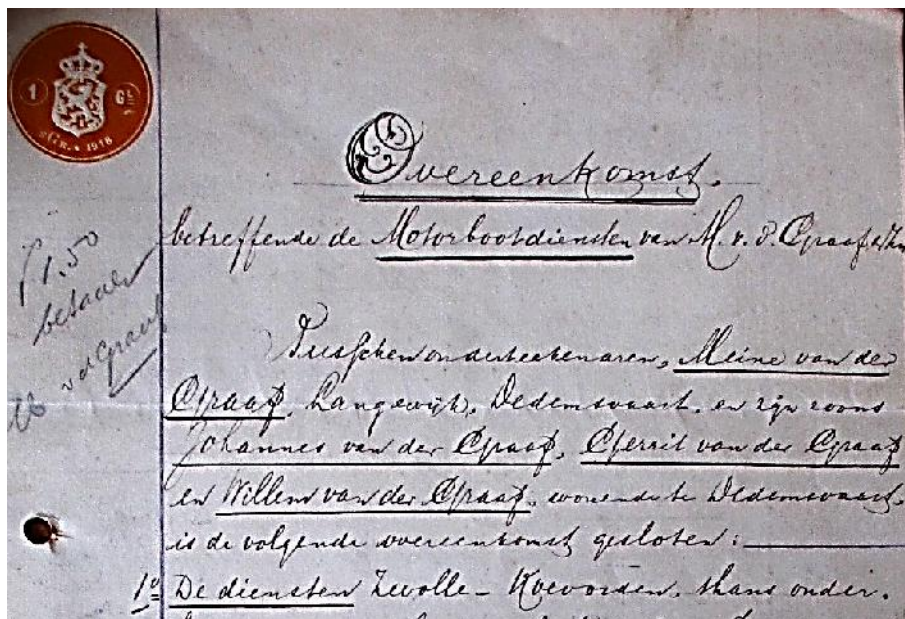 1 Gl.
1918
Overeenkomst.
betreffende de Motorbootdiensten van M. v. d. Graaf & Zn
f 1.50
betaald
v d Graaf
Tusschen ondertekenaren, Meine van der
Graaf, Langewijk, Dedemsvaart, en zijn zoons
Johannes van der Graaf, Gerrit van der Graaf
en Willem van der Graaf, wonende te Dedemsvaart,
is de volgende overeenkomst gesloten:
1º De diensten Zwolle - Koevorden, thans onder.